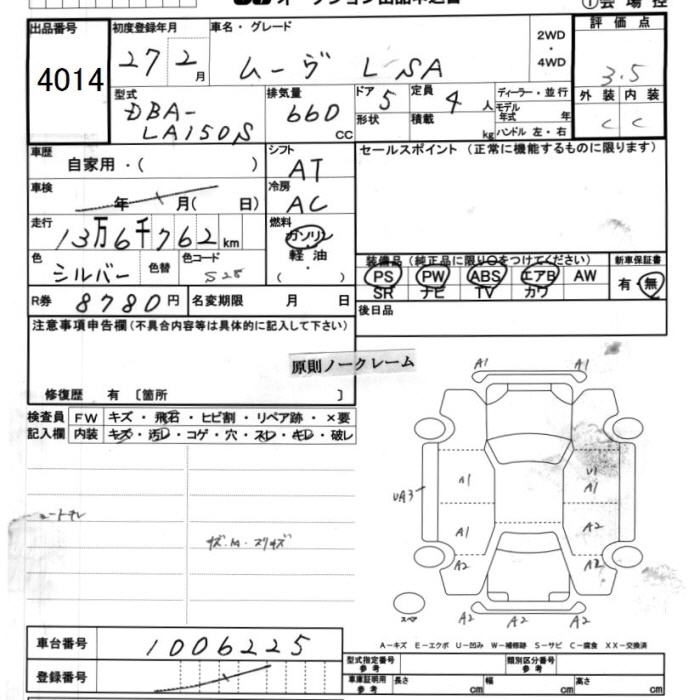 オークション出品申込書
①会場控
出品番号
4014
初度登録年月
27 2 月
車名・グレード
ムーヴ L SA
2WD
・
4WD
評価点
3.5
外装 内装
C C
型式
DBA-
LA150S
排気量
660
CC
ドア 5
形状
定員 4 人
積載 kg
ディーラー・並行
モデル年式 年
ハンドル 左・右
車歴
自家用・( )
シフト
AT
セールスポイント (正常に機能するものに限ります)
車検
年 月( 日)
冷房
AC
走行
13万6千762km
燃料
ガソリン
軽油
・
( )
色
シルバー
色替
色コード
S28
装備品 (純正品に限り○をつけてください)
PS PW ABS エアB AW
SR ナビ TV カワ
新車保証書
有・無
R券 8780円
名変期限 月 日
後日品
注意事項申告欄 (不具合内容等は具体的に記入して下さい)
原則ノークレーム
修復歴 有 〔箇所 〕
検査員
記入欄
FW キズ・飛石・ヒビ割・リペア跡・×要
内装 キズ・汚レ・コゲ・穴・スレ・キレ・破レ
A1 A1
A1 U1
A1
UA3
A1 A2
A2 A2
スペア
A2 A2
A-キズ E-エクボ U-凹み W-補修跡 S-サビ C-腐食 XX-交換済
車台番号 1006225
登録番号
型式指定番号
参考
類別区分番号
参考
車庫証明用
参考
長さ cm 幅 cm 高さ cm